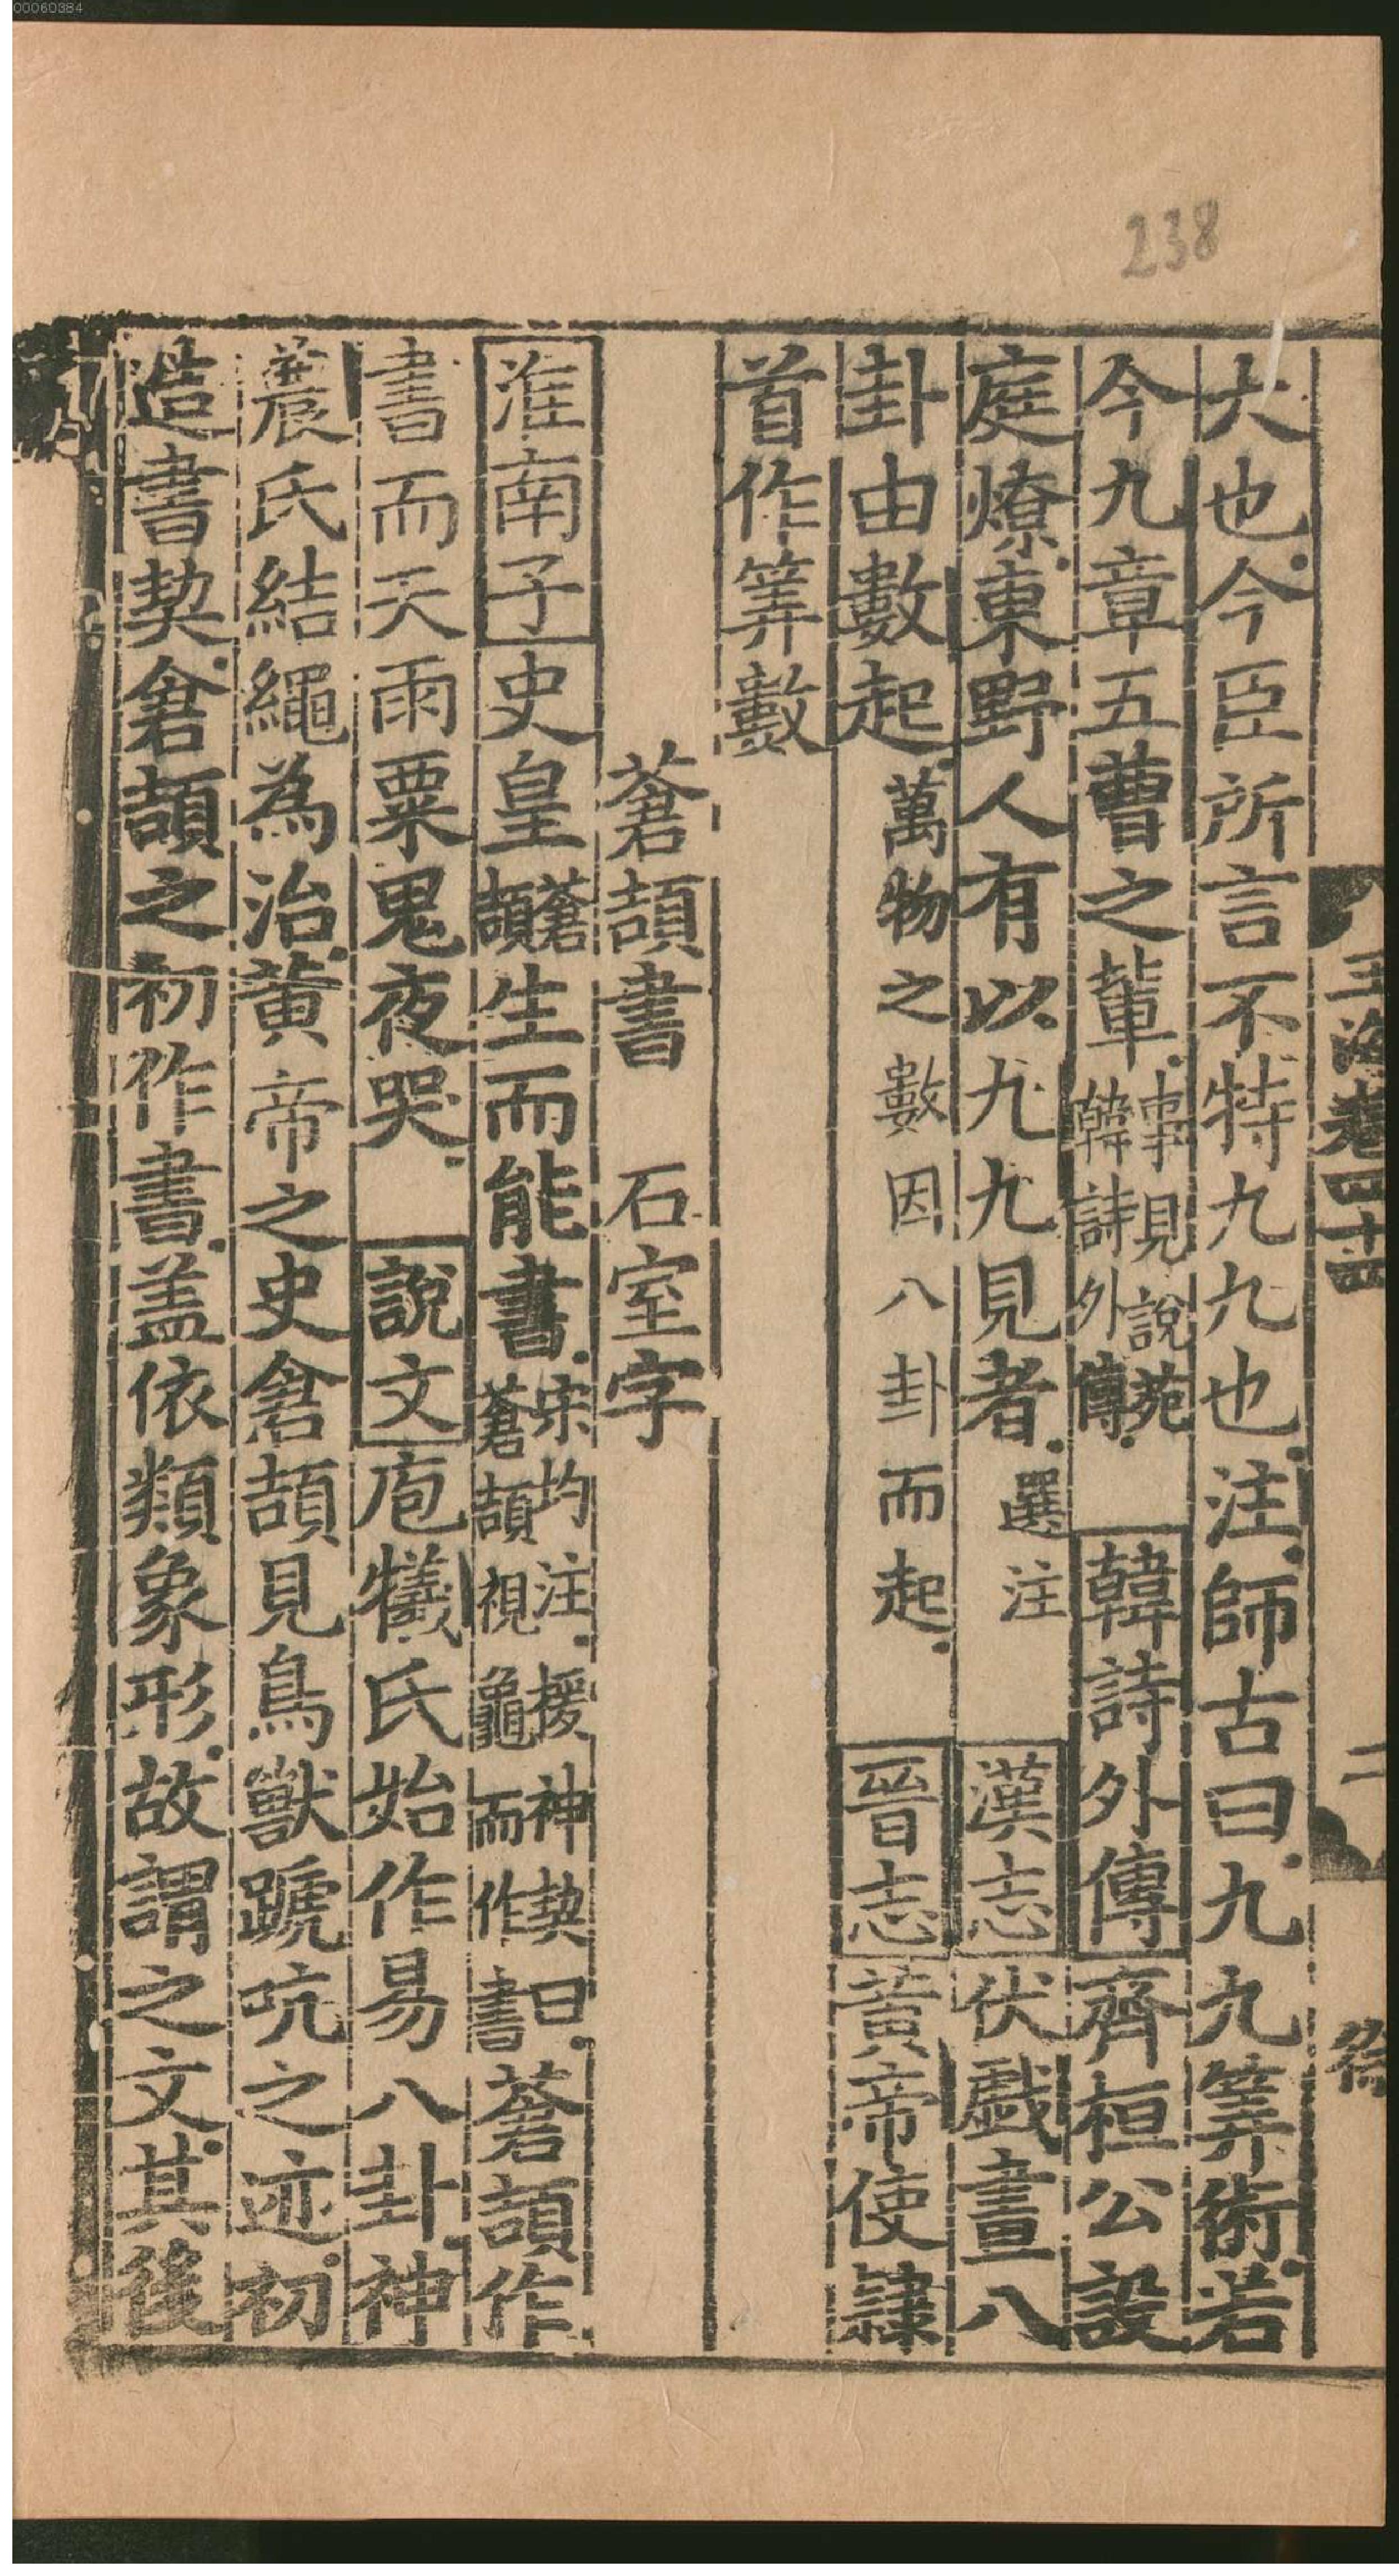 00060384
238
玉海卷四十四
二
大也今臣所言不特九九也注師古曰九九筭術若
今九章五曹之輩事見說苑韓詩外傳韓詩外傳齊桓公設
庭燎東野人有以九九見者選注漢志伏戲畫八
卦由數起萬物之數因八卦而起晉志黃帝使隸
首作筭數
蒼頡書 石室字
淮南子史皇蒼頡生而能書宋均注援神契曰蒼頡視龜而作書蒼頡作
書而天雨粟鬼夜哭說文庖犧氏始作易八卦神
農氏結繩為治黃帝之史倉頡見鳥獸蹏迒之迹初
造書契倉頡之初作書盖依類象形故謂之文其後